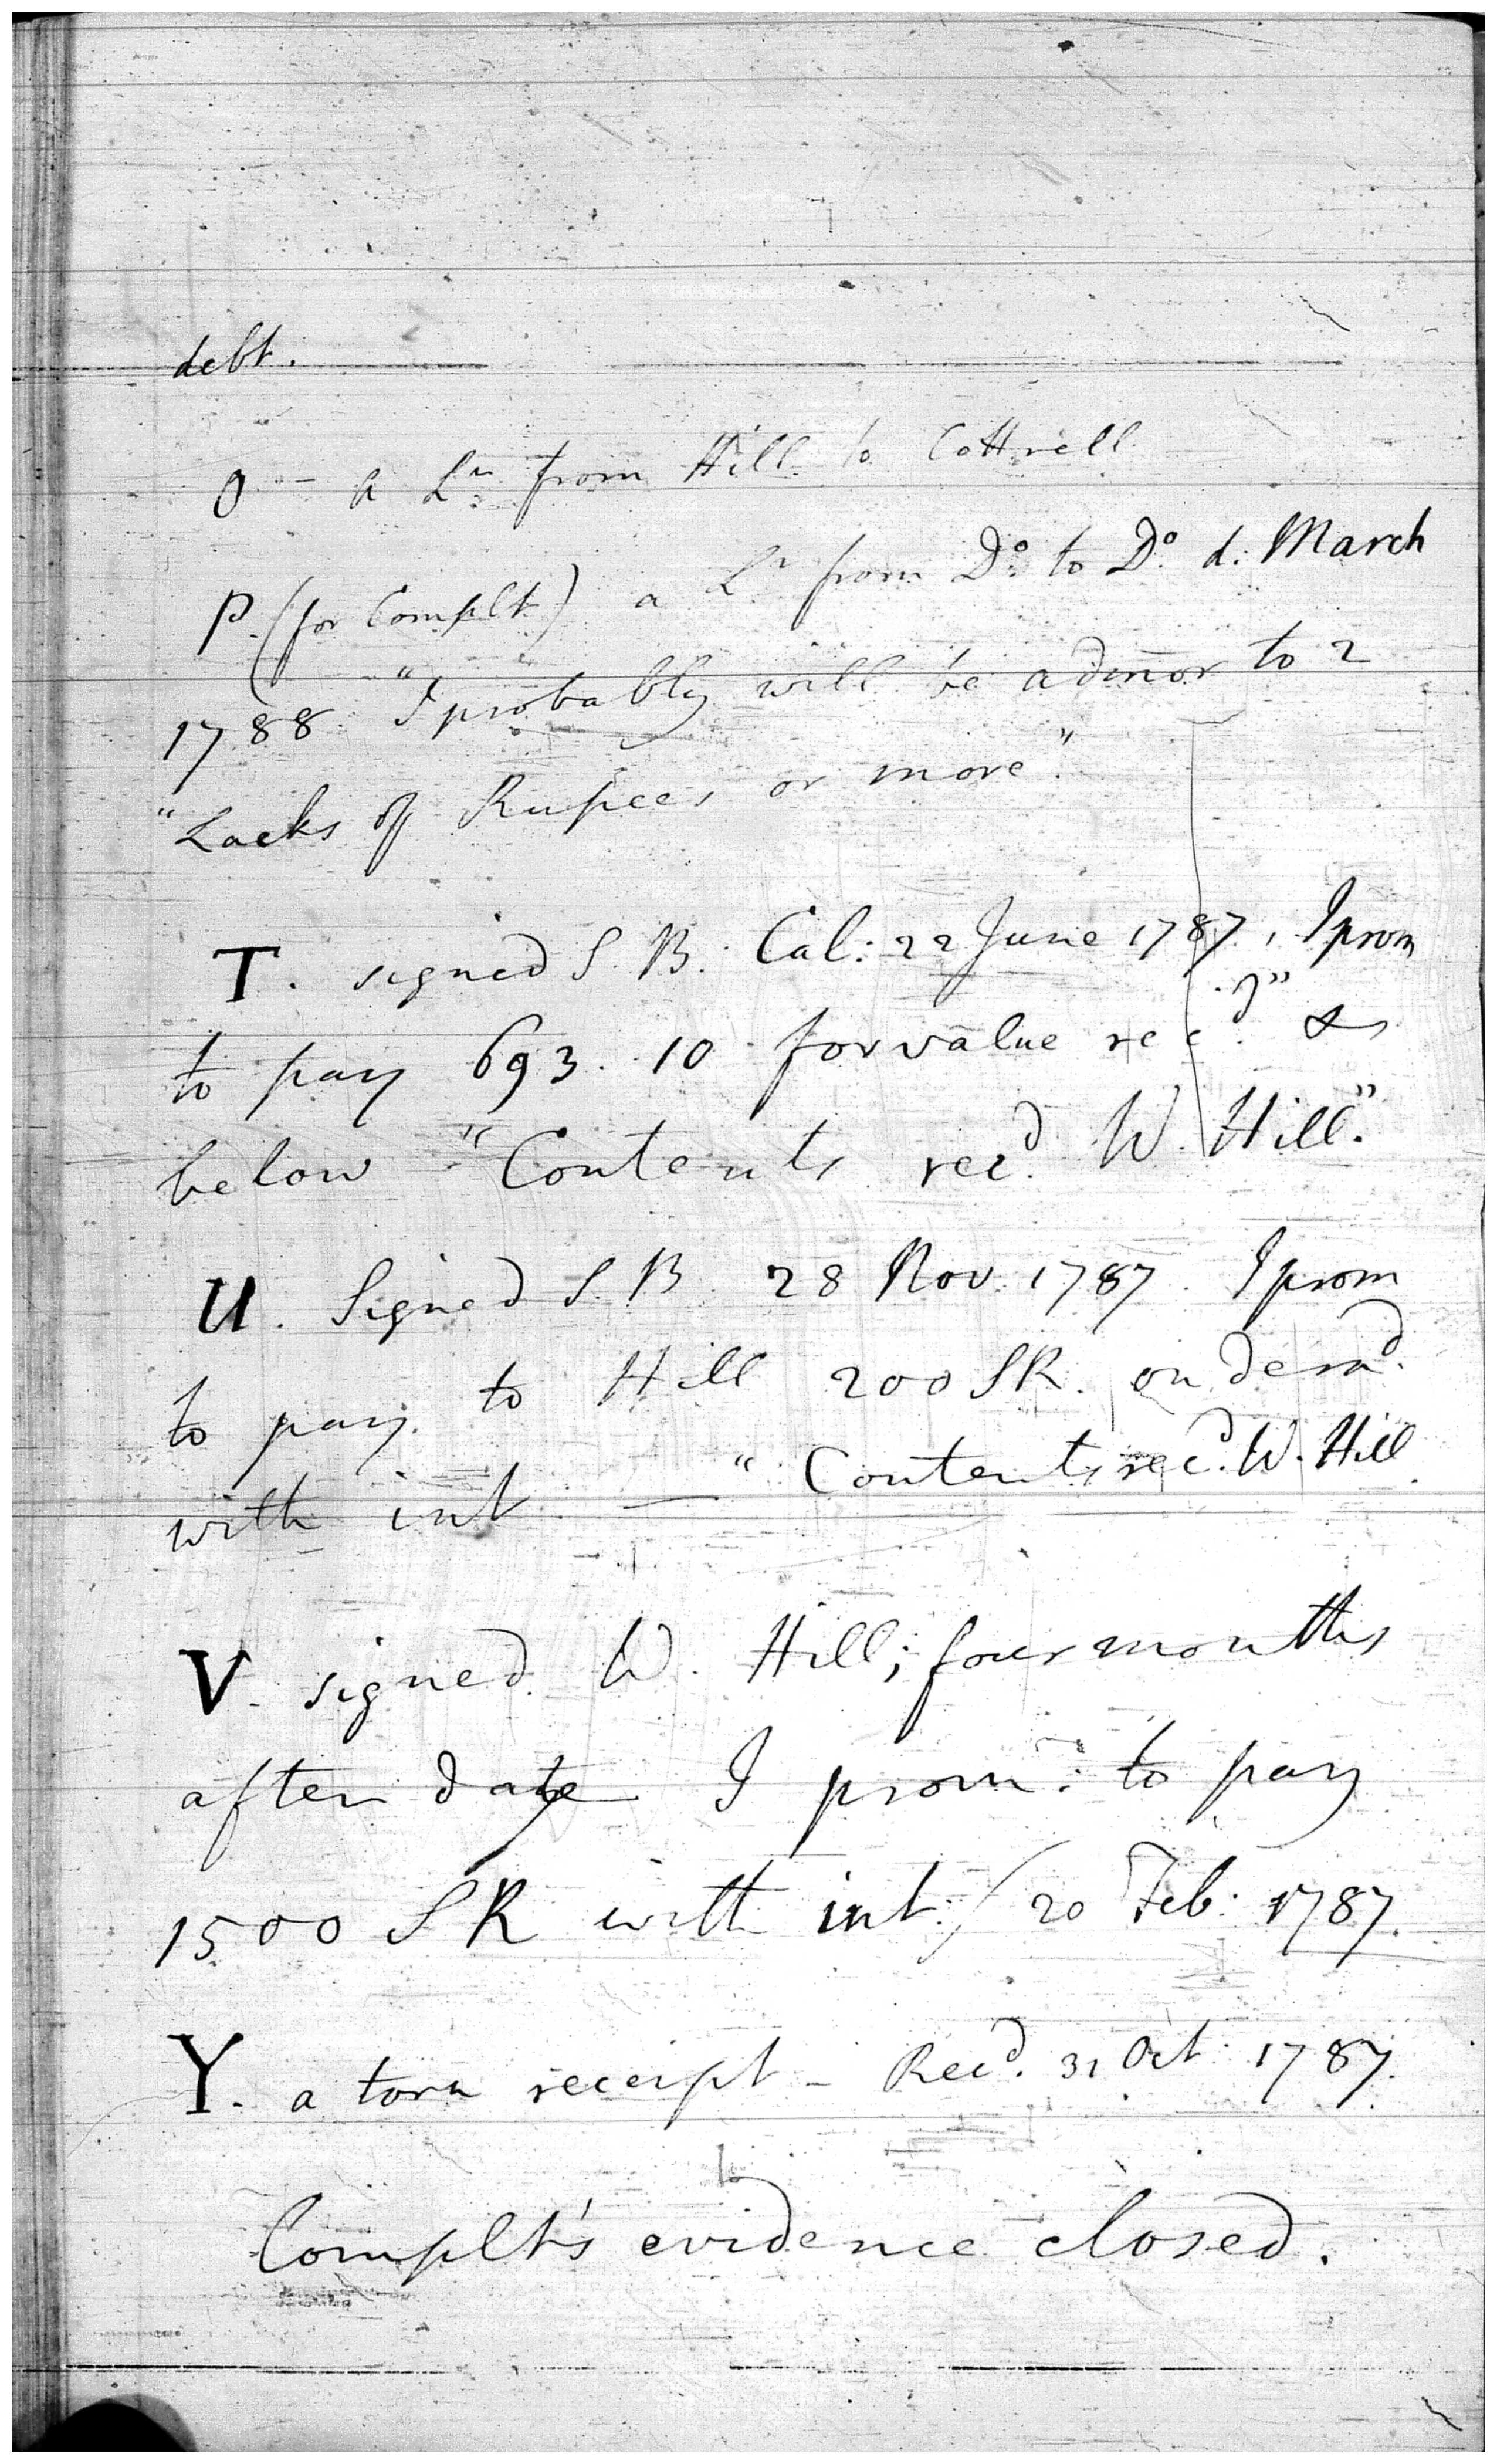 debt.
O - a Lr from Hill to Cottrell
P. (for Complt) a Lr from Do. to Do. d. March
1788. "I probably will be admor to 2
"Lacks of Rupees or more."
T. signed S. B. Cal: 22 June 1787, I prom
to pay 693. 10 for value rec.d" &
below "Contents recd. W. Hill."
U. Signed S. B 28 Nov. 1787. I prom
to pay to Hill 200 SR. on demd.
with int. — "Contents recd. W. Hill
V. signed W. Hill; four months
after date I prom: to pay
1500 SR with int./ 20 Feb: 1787.
Y. a torn receipt - Recd. 31 Oct: 1787.
Complt's evidence closed.